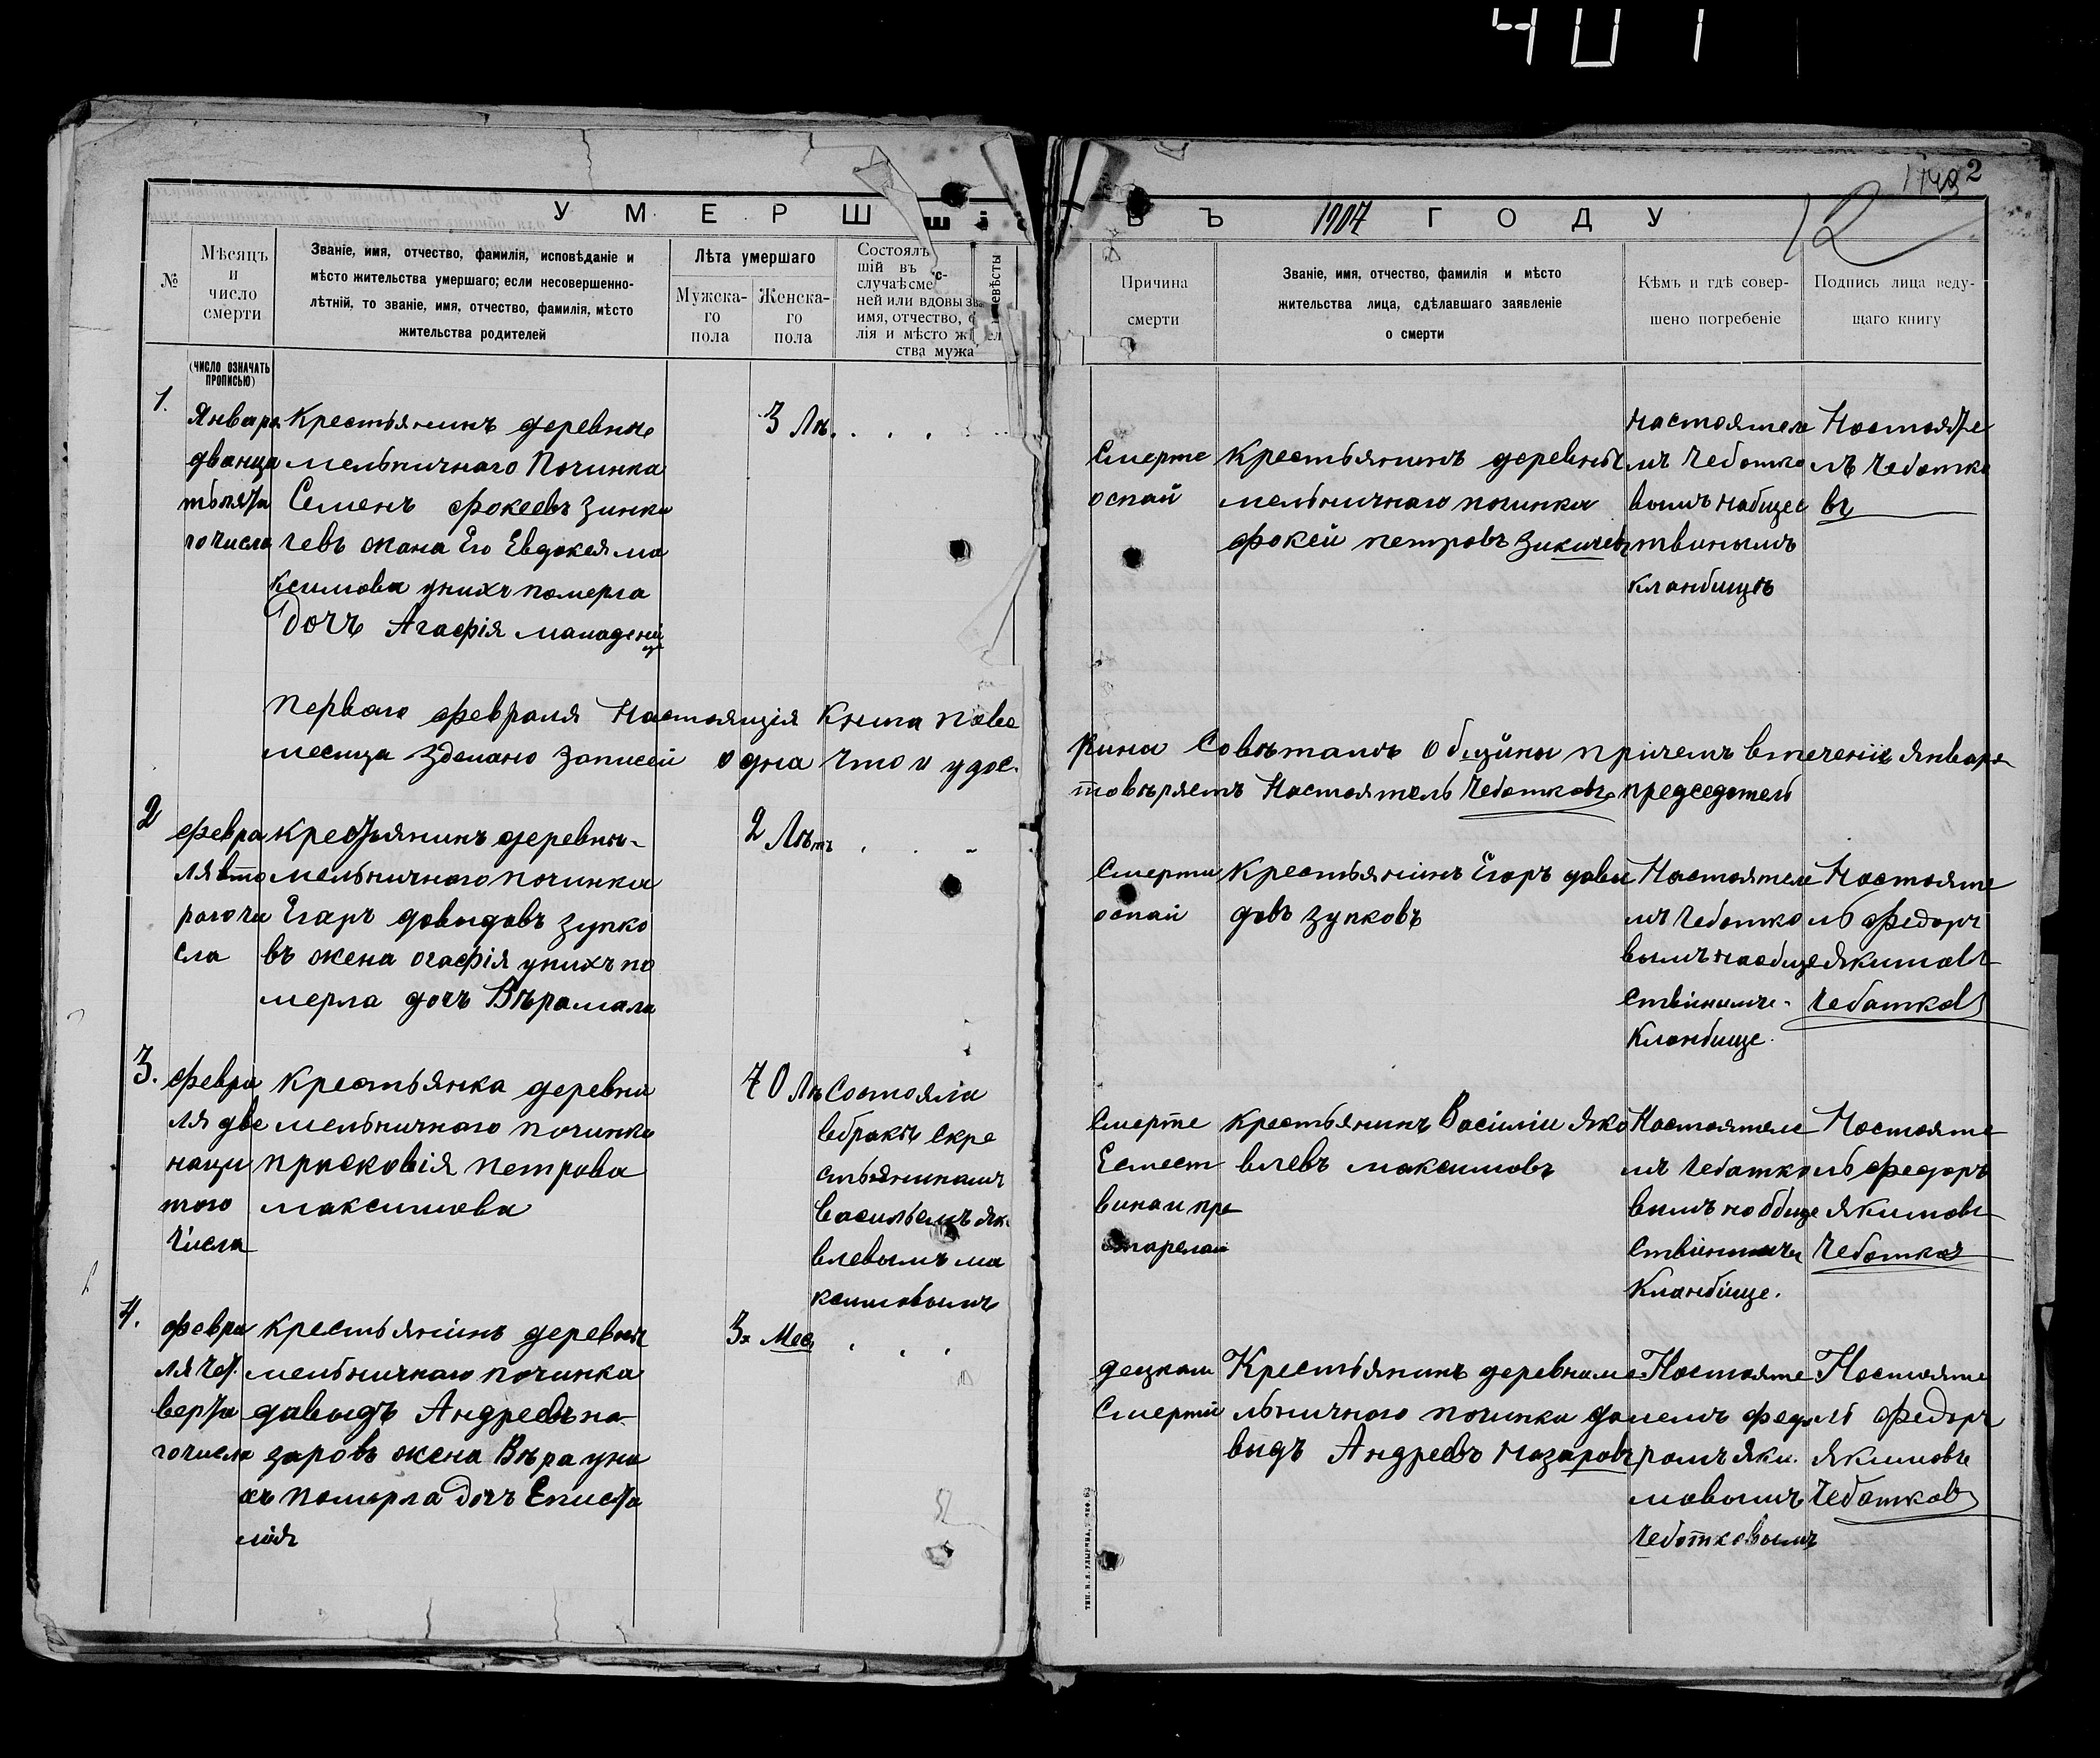 401
1143 2
12
УМЕРШ
ВЪ 1907 ГОДУ
№
Мѣсяцъ
и
число
смерти
Званіе, имя, отчество, фамилія, исповѣданіе и
мѣсто жительства умершаго; если несовершенно-
лѣтній, то званіе, имя, отчество, фамилія, мѣсто
жительства родителей
Лѣта умершаго
Мужска-
го
пола
Женска-
го
пола
Состоял
шій въ
случаѣ сме
ней или вдовы
имя, отчество,
лія и мѣсто ж
ства мужа
Причина
смерти
Званіе, имя, отчество, фамилія и мѣсто
жительства лица, сдѣлавшаго заявленіе
о смерти
Кѣмъ и гдѣ совер-
шено погребеніе
Подпись лица веду-
щаго книгу
(ЧИСЛО ОЗНАЧАТЬ
ПРОПИСЬЮ)
1.
Января
дванца
тьпята
гочисла
Крестьянинъ деревне
мельничнаго Починка
Семенъ фокеевъ Зинка
чевъ жана Его Евдокея ма
ксимова унихъ померла
Дочъ Агафія маладени
ца
3 Лѣ.
Смерте
оспай
Крестьянинъ деревны
мельничнаго починка
фокей петровъ Зикичевъ
Настоятеле
мъ Чеботко
вымъ набщес
твинымъ
кланбищѣ
Настояте
лъ Чеботко
въ
первого февраля Настоящія Книга пове
месеца Зделано Записей одна Что и удос.
рина Совѣтамъ общины причемъ втеченіе января
товѣряетъ Настоятель Чеботковъ председатель
2
февра
ля вто
рогочи
сла
крестьянинъ деревны-
мельничного починка
Егаръ довыдовъ Зупко
въ жена огафія унихъ по
мерла дочъ Вѣра мала
2 Лѣтъ
Смерти
оспай
Крестьянинъ Егоръ давы
довъ Зупковъ
Настоятеле
мъ Чеботко
вымъ наобще
ствинымъ.
Кланбище.
Настояте
ль федоръ
якимовъ
Чебатковъ
3.
февра
ля две
нацы
того
числа
Крестьянка деревни
мельничного починка
прасковія петрова
максимова
70 Лѣ
Состояла
вбраке скре
стьяниномъ
васильемъ як.
влевымъ ма
ксимовымъ
Смерте
Естест
винаи пре
старелаи
крестьянинъ Васіліи яко
влевъ максимовъ
Настоятеле
мъ Чебатко
вымъ нообще
ствіннымъ
Кланбіще.
Настояте
ль федоръ
якимовъ
Чебатков
4.
февра
ля Чет.
верта
гочисла
Крестьянинъ деревны
мельничнаго починка
давыдъ Андреевъ на-
заровъ жена Вѣра уни
хъ померла Дочъ Еписти
мія
3х Мес.
децкаи
Смерти
Крестьянинъ деревни ме
льничного починка да
выдъ Андреевъ Назаровъ
Настояте
лемъ федо
ромъ яки.
мовымъ
Чеботковымъ
Настояте
ль федоръ
якимовъ
Чебатковъ